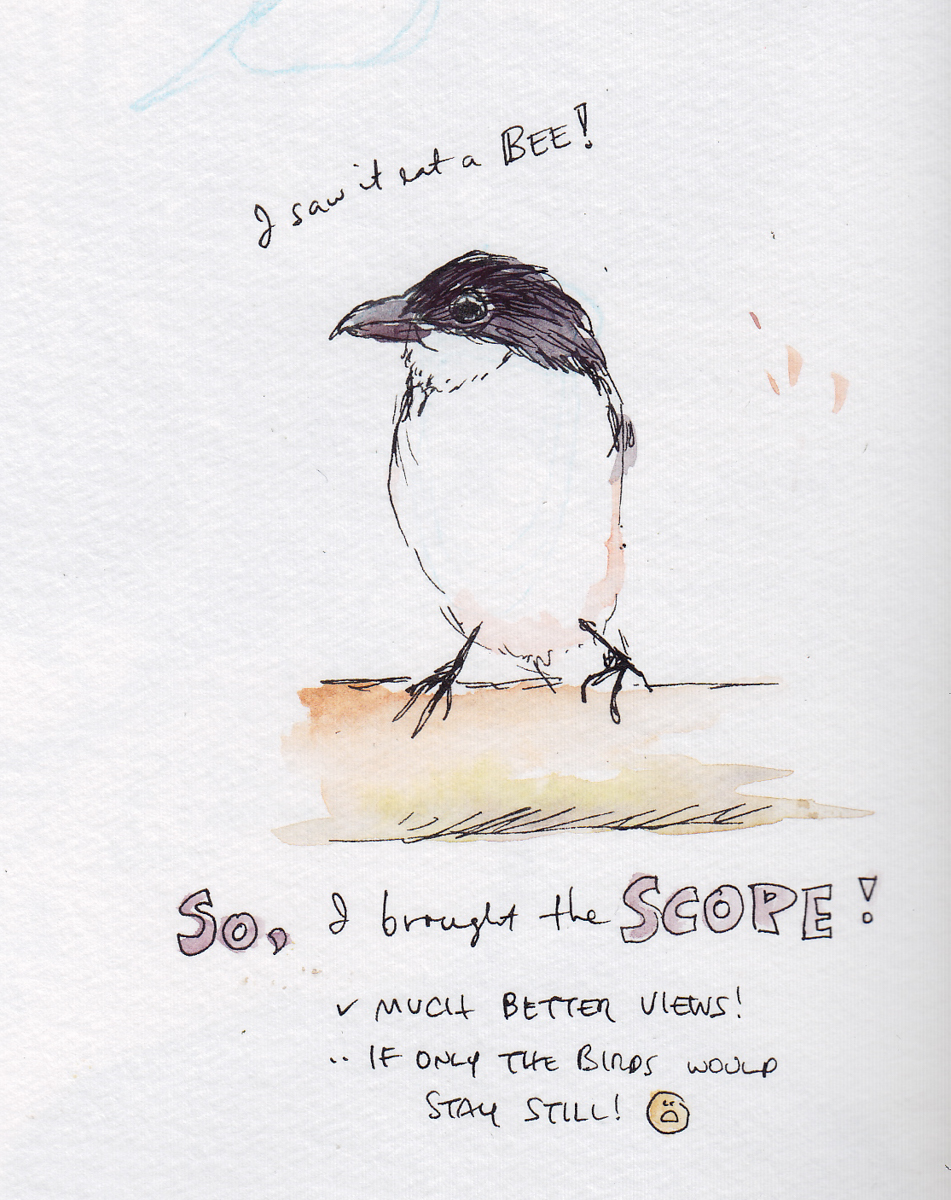 I saw it eat a BEE!
So, I brought the SCOPE!
✓ MUCH BETTER VIEWS!
.. IF ONLY THE BIRDS WOULD
STAY STILL!